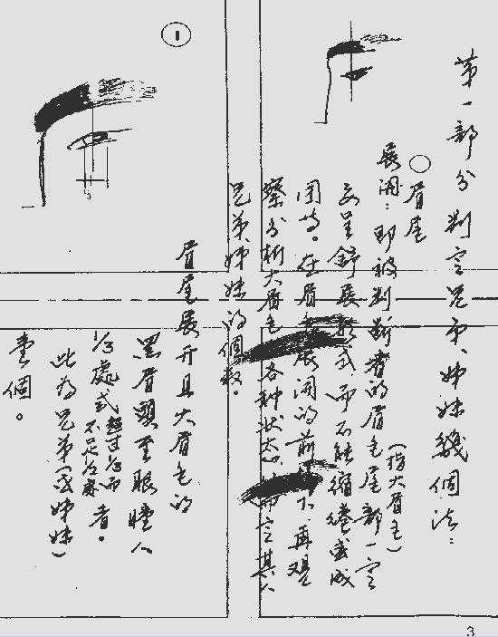 第一部分 判定兄弟、姊妹幾個法：
眉尾
展開：即被判斷者的眉毛尾部一定
（指大眉毛）
要呈舒展形式而不能縮捲或成
团的。在眉毛展開的前提下，再观
察分析大眉毛各种状态，而定其人
兄弟、姊妹的個数。
1
眉尾展开且大眉毛的
黑眉頭至眼瞳人
1/3處或
超过谷而
不足谷寮
者。
此为兄弟（或姊妹）
壹個。
3